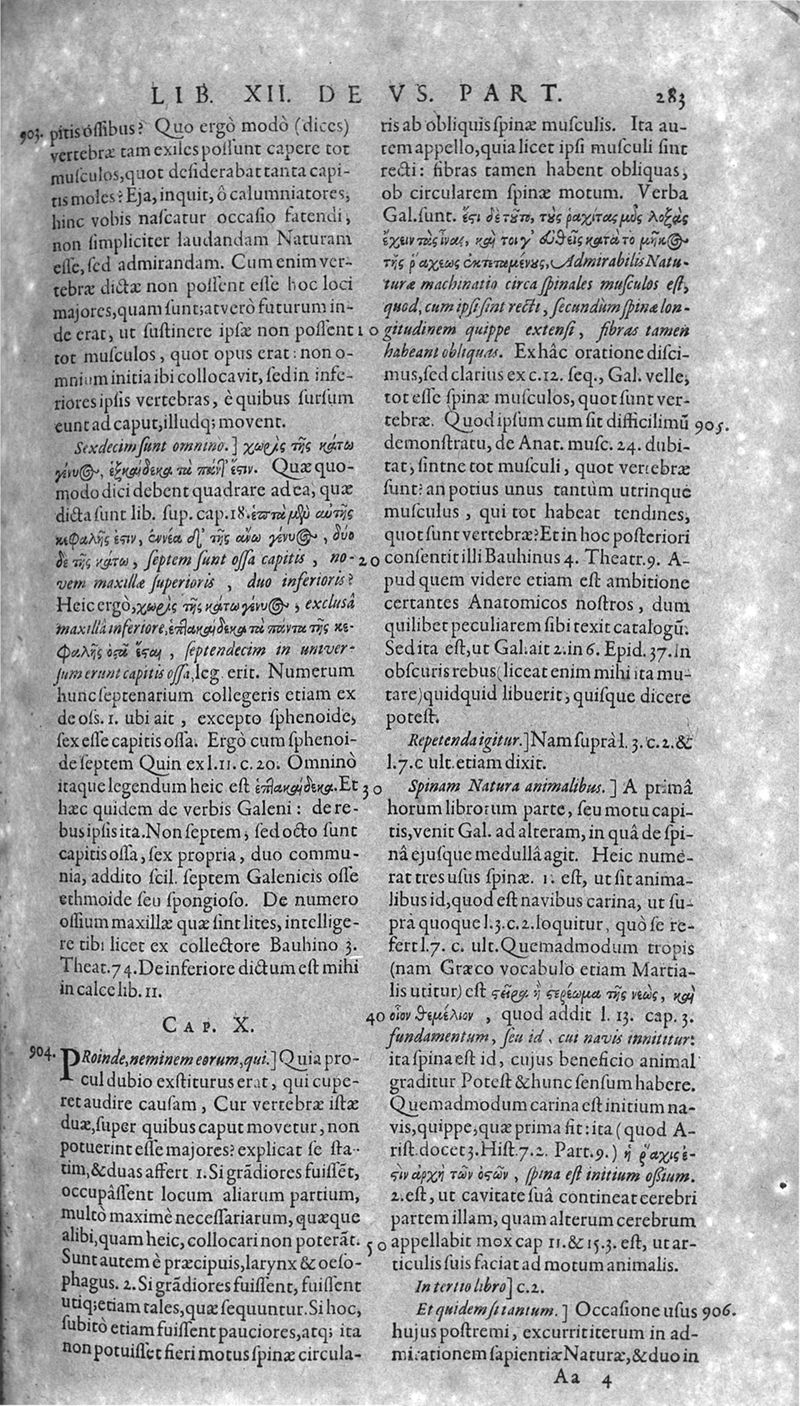 LIB. XII. DE VS. PART. 283
903. pitis óſſibus? Quo ergò modò (dices)
vertebræ tam exiles poſſunt capere tot
muſculos, quot deſiderabat tanta capi-
tis moles? Eja, inquit, ô calumniatores,
hinc vobis naſcatur occaſio fatendi,
non ſimpliciter laudandam Naturam
eſſe, ſed admirandam. Cum enim ver-
tebræ dictæ non poſſent eſſe hoc loci
majores, quam ſunt; at verò futurum in-
de erat, ut ſuſtinere ipſæ non poſſent
tot muſculos, quot opus erat: non o-
mnium initia ibi collocavit, ſed in infe-
riores ipſis vertebras, è quibus ſurſum
eunt ad caput, illudq; movent.
Sexdecim ſunt omnino.] χωρὶς τῆς κάτω
γένυ〈ος〉, ἑξκαίδεκα τὰ πάντ' ἔστιν. Quæ quo-
modo dici debent quadrare ad ea, quæ
dicta ſunt lib. ſup. cap. 18. ἑπτὰ μὲν αὐτῆς
κεφαλῆς ἐστιν, ἐννέα δ' τῆς ἄνω γένυος, δύο
δὲ τῆς κάτω, ſeptem ſunt oſſa capitis, no-
vem maxillæ ſuperioris, duo inferioris?
Heic ergò, χωρὶς τῆς κάτω γένυος, excluſâ
maxillâ inferiore, ἑπτακαίδεκα τὰ πάντα τῆς κε-
φαλῆς ὀστᾶ ἔσται, ſeptendecim in univer-
ſum erunt capitis oſſa, leg. erit. Numerum
hunc ſeptenarium collegeris etiam ex
de oſſ. 1. ubi ait, excepto ſphenoide,
ſex eſſe capitis oſſa. Ergò cum ſphenoi-
de ſeptem Quin ex l. 11. c. 20. Omninò
itaque legendum heic eſt ἑπτακαίδεκα. Et
hæc quidem de verbis Galeni: de re-
bus ipſis ita. Non ſeptem, ſed octo ſunt
capitis oſſa, ſex propria, duo commu-
nia, addito ſcil. ſeptem Galenicis oſſe
ethmoide ſeu ſpongioſo. De numero
oſſium maxillæ quæ ſint lites, intellige-
re tibi licet ex collectore Bauhino 3.
Theat. 74. De inferiore dictum eſt mihi
in calce lib. 11.
CAP. X.
904. PRoinde, neminem eorum, qui.] Quia pro-
cul dubio exſtiturus erat, qui cupe-
ret audire cauſam, Cur vertebræ iſtæ
duæ, ſuper quibus caput movetur, non
potuerint eſſe majores? explicat ſe ſta-
tim, & duas affert 1. Si grādiores fuiſſēt,
occupâſſent locum aliarum partium,
multò maximè neceſſariarum, quæque
alibi, quam heic, collocari non poterāt.
Sunt autem è præcipuis, larynx & oeſo-
phagus. 2. Si grādiores fuiſſent, fuiſſent
utiq; etiam tales, quæ ſequuntur. Si hoc,
ſubitò etiam fuiſſent pauciores, atq; ita
non potuiſſet fieri motus ſpinæ circula-
ris ab obliquis ſpinæ muſculis. Ita au-
tem appello, quia licet ipſi muſculi ſint
recti: fibras tamen habent obliquas,
ob circularem ſpinæ motum. Verba
Gal. ſunt. ἔστι δὲ τοῦτο, τοὺς ῥαχίτας μῦς λοξὰς
ἔχειν τὰς ἶνας, καί τοι γ' εὐθεῖς κατὰ τὸ μῆκος
τῆς ῥάχεως ἐκτεταμένους, Admirabilis Natu-
turæ machinatio circa ſpinales muſculos eſt,
quod, cum ipſi ſint recti, ſecundùm ſpinæ lon-
10 gitudinem quippe extenſi, fibras tamen
habeant obliquas. Ex hâc oratione diſci-
mus, ſed clarius ex c. 12. ſeq., Gal. velle,
tot eſſe ſpinæ muſculos, quot ſunt ver-
tebræ. Quod ipſum cum ſit difficilimū 905.
demonſtratu, de Anat. muſc. 24. dubi-
tat, ſintne tot muſculi, quot vertebræ
ſunt? an potius unus tantùm utrinque
muſculus, qui tot habeat tendines,
quot ſunt vertebræ? Et in hoc poſteriori
20 conſentit illi Bauhinus 4. Theatr. 9. A-
pud quem videre etiam eſt ambitione
certantes Anatomicos noſtros, dum
quilibet peculiarem ſibi texit catalogū.
Sed ita eſt, ut Gal. ait 2. in 6. Epid. 37. In
obſcuris rebus (liceat enim mihi ita mu-
tare) quidquid libuerit, quiſque dicere
poteſt.
Repetenda igitur.] Nam ſuprà l. 3. c. 2. &
l. 7. c ult. etiam dixit.
30 Spinam Natura animalibus.] A primâ
horum librorum parte, ſeu motu capi-
tis, venit Gal. ad alteram, in quâ de ſpi-
nâ ejuſque medullâ agit. Heic nume-
rat tres uſus ſpinæ. 1. eſt, ut ſit anima-
libus id, quod eſt navibus carina, ut ſu-
prà quoque l. 3. c. 2. loquitur, quò ſe re-
fert l. 7. c. ult. Quemadmodum tropis
(nam Græco vocabulo etiam Martia-
lis utitur) eſt στεῖρα ἢ στερέωμα τῆς νεὼς, καὶ
40 οἷον θεμέλιον, quod addit l. 13. cap. 3.
fundamentum, ſeu id, cui navis innititur:
ita ſpina eſt id, cujus beneficio animal
graditur Poteſt & hunc ſenſum habere.
Quemadmodum carina eſt initium na-
vis, quippe, quæ prima fit: ita (quod A-
riſt. docet 3. Hiſt. 7. 2. Part. 9.) ἡ ῥάχις ἐ-
στιν ἀρχὴ τῶν ὀστῶν, ſpina eſt initium oſſium.
2. eſt, ut cavitate ſuâ contineat cerebri
partem illam, quam alterum cerebrum
50 appellabit mox cap 11. & 15. 3. eſt, ut ar-
ticulis ſuis faciat ad motum animalis.
In tertio libro] c. 2.
Et quidem ſi tantum.] Occaſione uſus 906.
hujus poſtremi, excurrit iterum in ad-
mirationem ſapientiæ Naturæ, & duo in
Aa 4